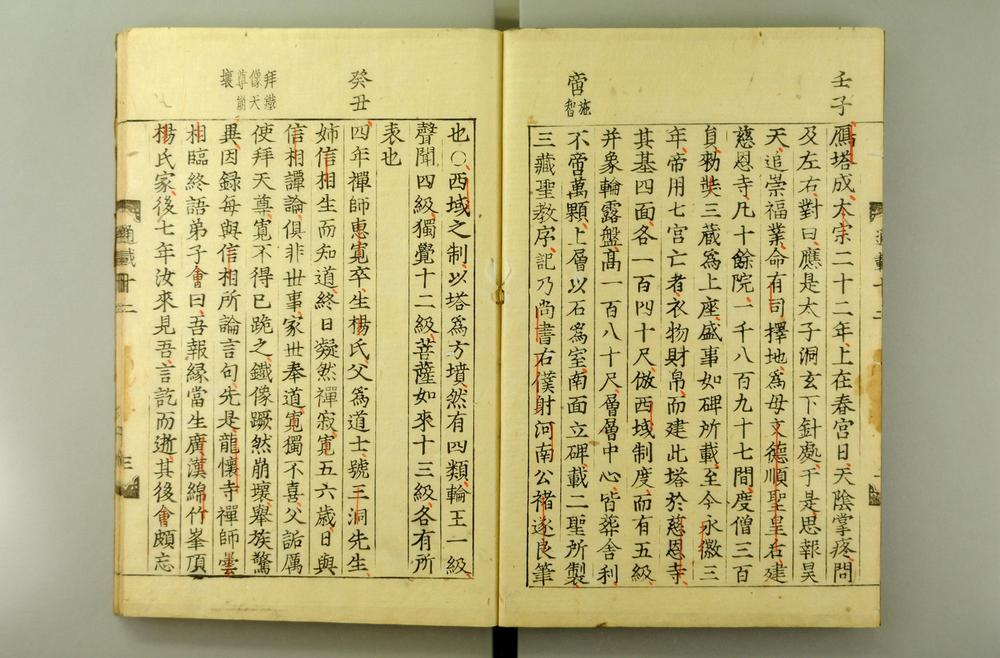 壬子
鴈塔成太宗二十二年上在春宮日天陰掌疼問
及左右對曰應是太子洞玄下針處于是思報昊
天追崇福業命有司擇地爲母文德順聖皇后建
慈恩寺凡十餘院一千八百九十七間度僧三百
員勑奘三藏爲上座盛事如碑所載至今永徽三
年帝用七宮亡者衣物財帛而建此塔於慈恩寺
其基四面各一百四十尺倣西域制度而有五級
并象輪露盤高一百八十尺層層中心皆葬舍利
不啻萬顆上層以石爲室南面立碑載二聖所製
三藏聖教序記乃尚書右僕射河南公褚遂良筆
啻施智
也○西域之制以塔爲方墳然有四類輪王一級
聲聞四級獨覺十二級菩薩如來十三級各有所
表也
癸丑
四年禪師惠寬卒生楊氏父爲道士號三洞先生
姉信相生而知道終日凝然禪寂寬五六歲日與
信相譚論俱非世事家世奉道寬獨不喜父詬厲
使拜天尊寬不得已跪之鐵像蹶然崩壞舉族驚
異因録每與信相所論言句先是龍懷寺禪師曇
相臨終語弟子會曰吾報緣當生廣漢綿竹峯頂
楊氏家後七年汝來見吾言訖而逝其後會頗忘
拜鐵
像天
尊崩
壞
通載十二
三